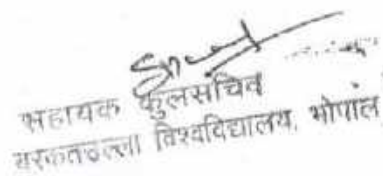 सहायक कुलसचिव
बरकतउल्ला विश्वविद्यालय, भोपाल